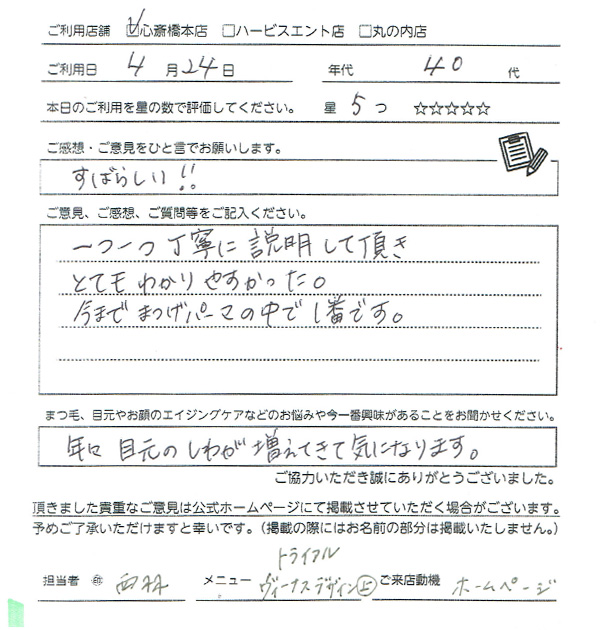 ご利用店舗 ☑心斎橋本店 □ハービスエント店 □丸の内店
ご利用日 4月24日 年代 40代
本日のご利用を星の数で評価してください。 星 5つ ☆☆☆☆☆
ご感想・ご意見をひと言でお願いします。
すばらしい!!
ご意見、ご感想、ご質問等をご記入ください。
一つ一つ丁寧に説明して頂き
とてもわかりやすかった。
今までまつげパーマの中で1番です。
まつ毛、目元やお顔のエイジングケアなどのお悩みや今一番興味があることをお聞かせください。
年々目元のしわが増えてきて気になります。
ご協力いただき誠にありがとうございました。
頂きました貴重なご意見は公式ホームページにて掲載させていただく場合がございます。
予めご了承いただけますと幸いです。（掲載の際にはお名前の部分は掲載いたしません。）
トライアル
担当者 メニュー ヴィーナスデザイン上 ご来店動機 ホームページ